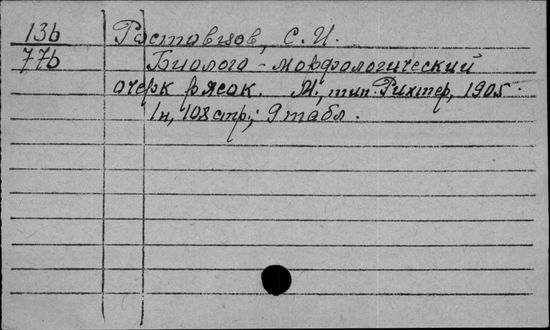 13b Ростовцов, С. И.
77b Биолого-морфологический
очерк рясок. М., тип. Рихтер, 1905.
1н, 108 стр.; 9 табл.